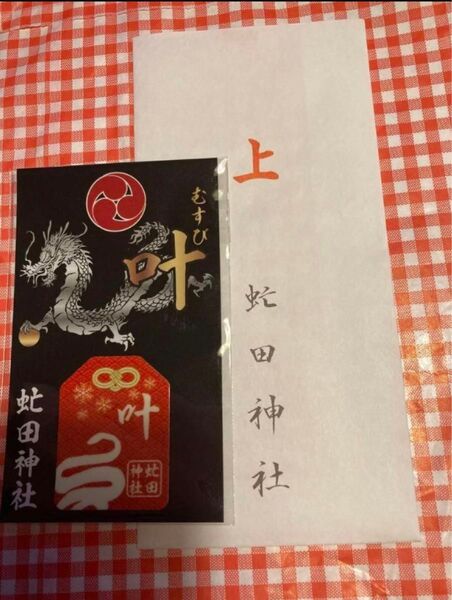 むすび
叶
叶
虻田
神社
虻田神社
上
虻田神社